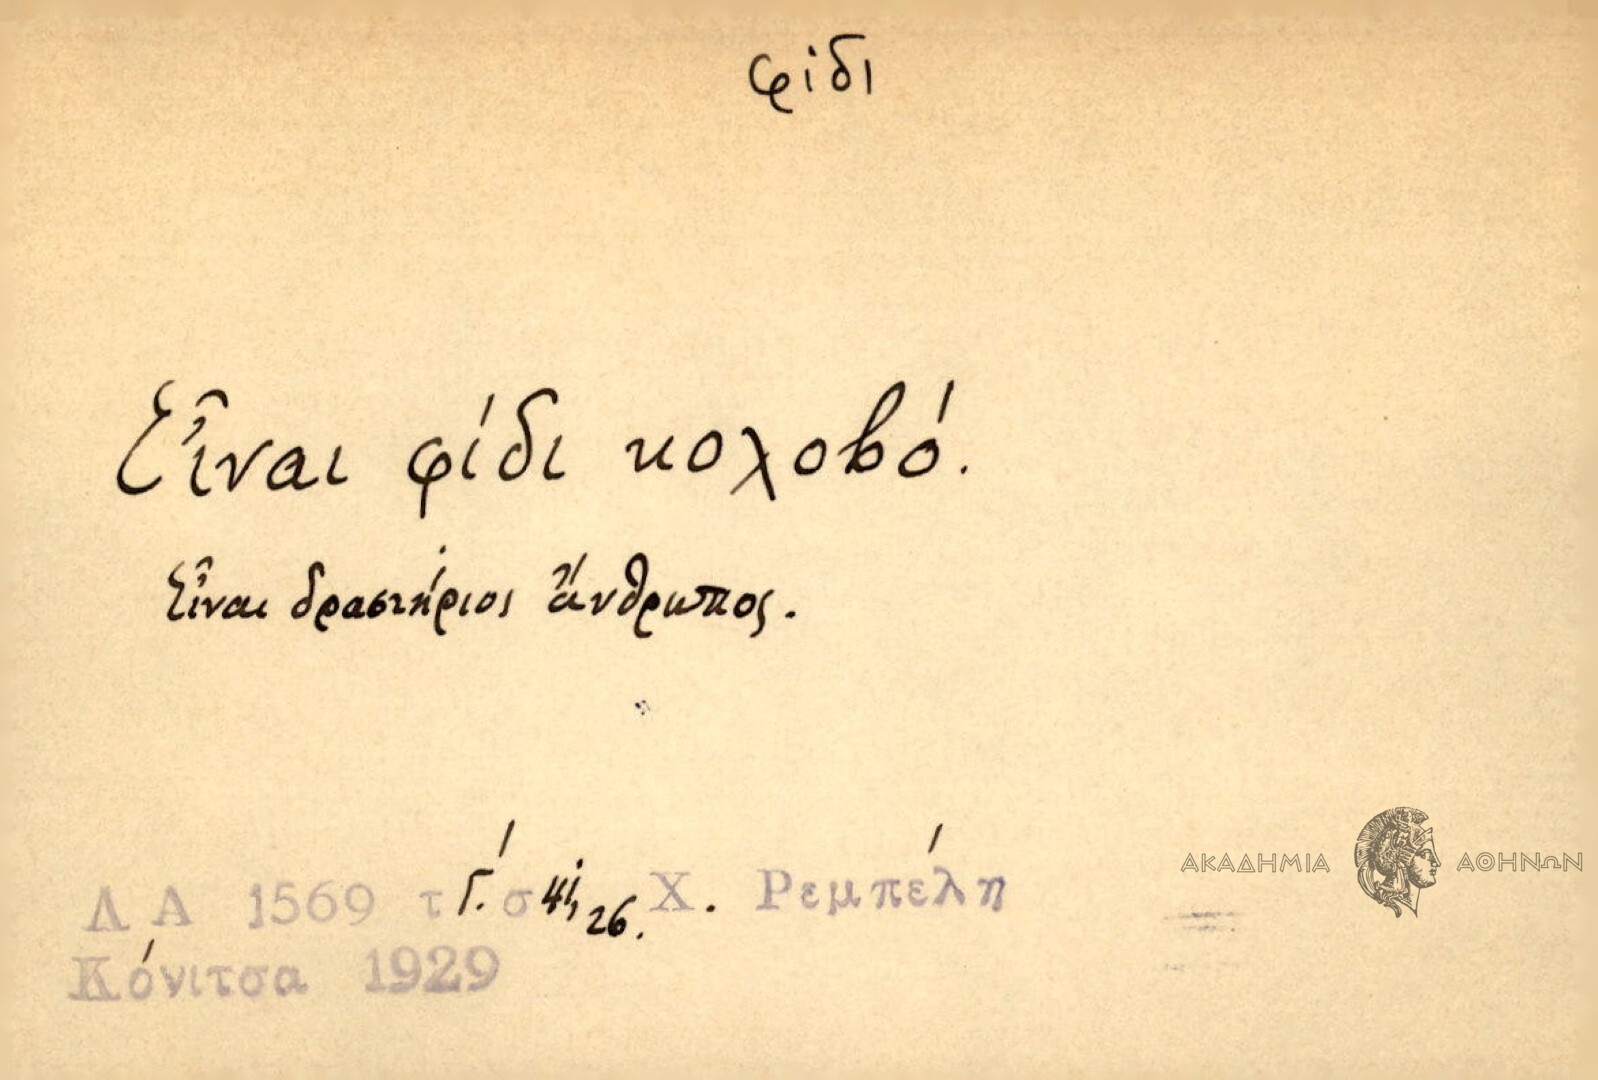 φίδι
Εἶναι φίδι κολοβό.
Εἶναι δραστήριος ἄνθρωπος.
ΑΚΑΔΗΜΙΑ ΑΘΗΝΩΝ
Λ Α 1569 τ Γ΄. σ 41, 26. Χ. Ρεμπέλη
Κόνιτσα 1929